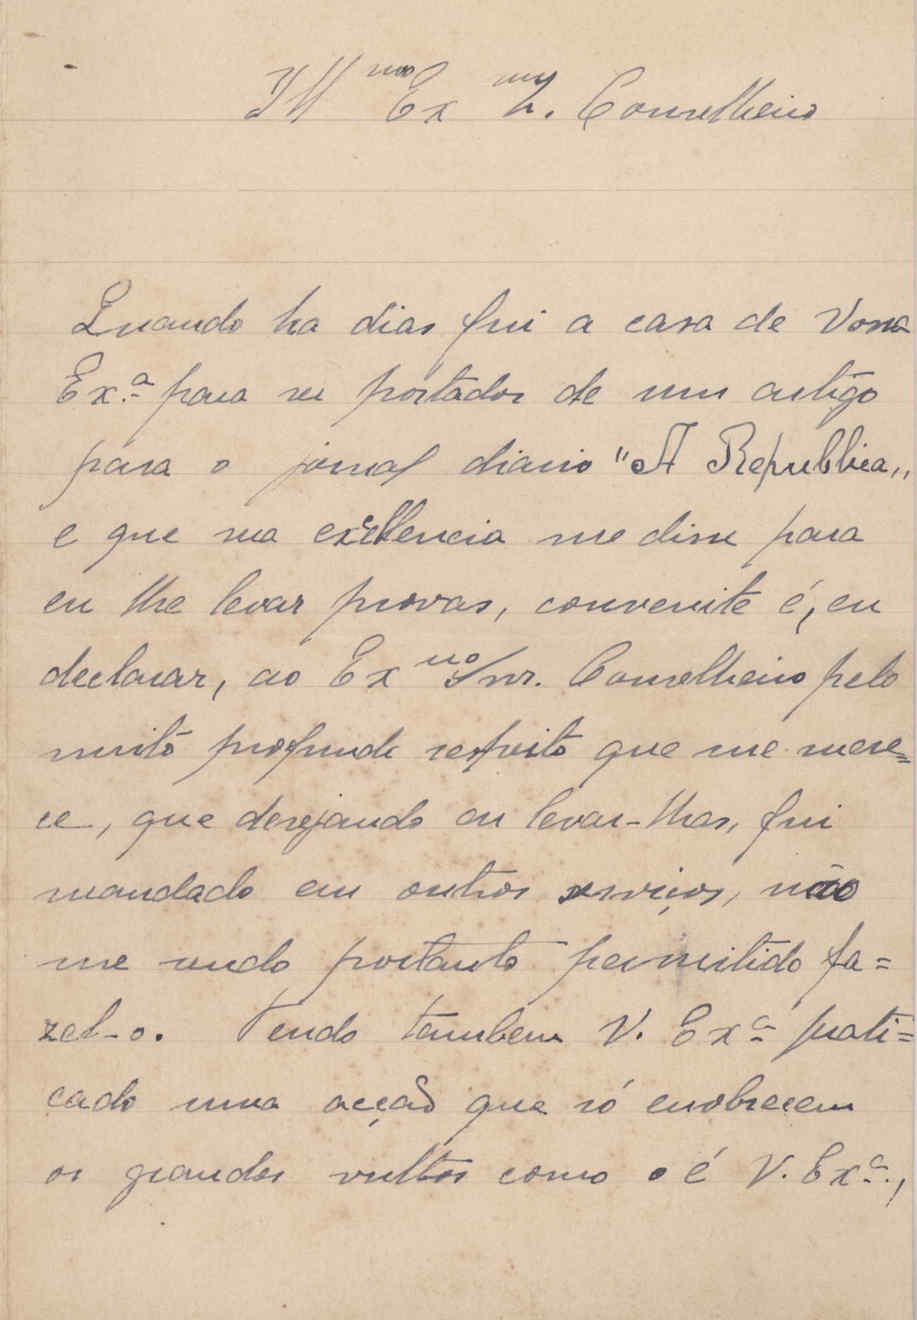 Ill mo Ex mo Sr. Conselheiro
Quando ha dias fui a casa de Vossa
Ex.ª para ser portador de um artigo
para o jornal diario "A Republica„
e que sua excellencia me disse para
eu lhe levar provas, conveniente é, eu
declarar, ao Ex mo Snr. Conselheiro pelo
muito profundo respeito que me mere=
ce, que desejando eu levar-lhas, fui
mandado em outros serviços, não
me sendo portanto permitido fa=
zel-o. Tendo tambem V. Exª prati=
cado uma acção que só enobrecem
os grandes vultos como o é V. Exª.,